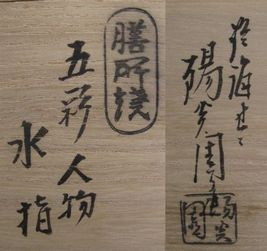 膳所焼
五彩人物
水指
陽炎園
陽炎園